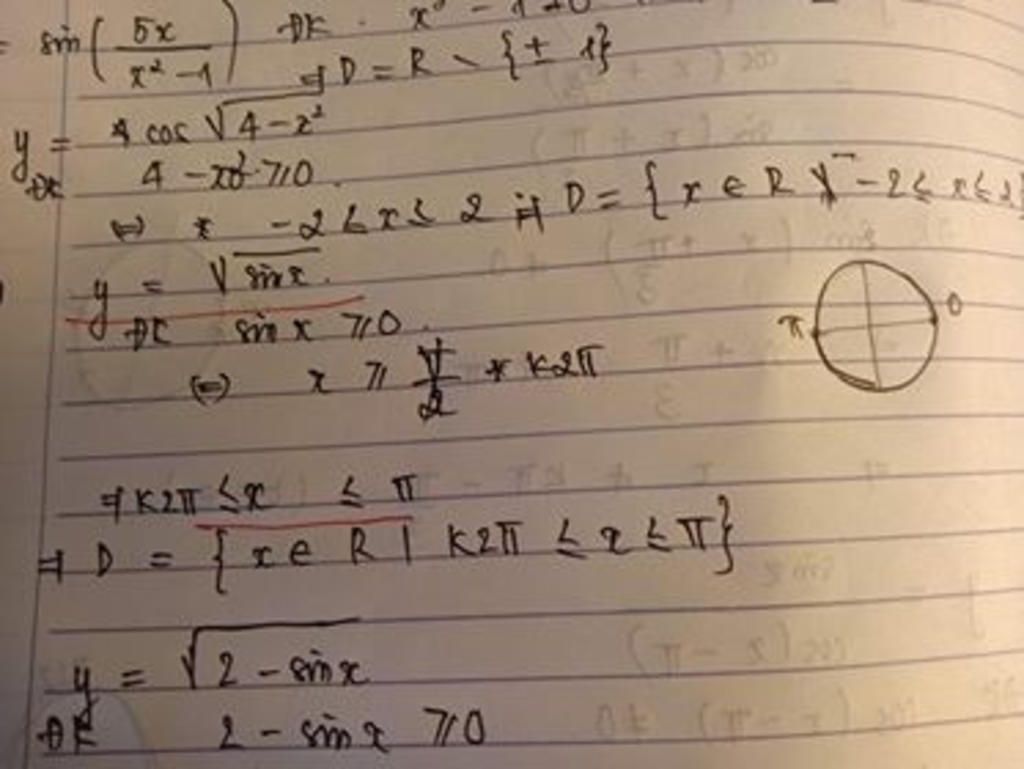 = sin(5x / x² - 1) ĐK
⇒ D = R \ {± 1}
y = 4 cos √4 - x²
ĐK 4 - x² ≥ 0
⇔ -2 ≤ x ≤ 2 ⇒ D = {x ∈ R | -2 ≤ x ≤ 2}
y = √sin x.
ĐK sin x ≥ 0.
⇔ x ≥ π/2 + k2π
π 0
⇒ k2π ≤ x ≤ π
⇒ D = {x ∈ R | k2π ≤ x ≤ π}
y = √2 - sin x
ĐK 2 - sin x ≥ 0